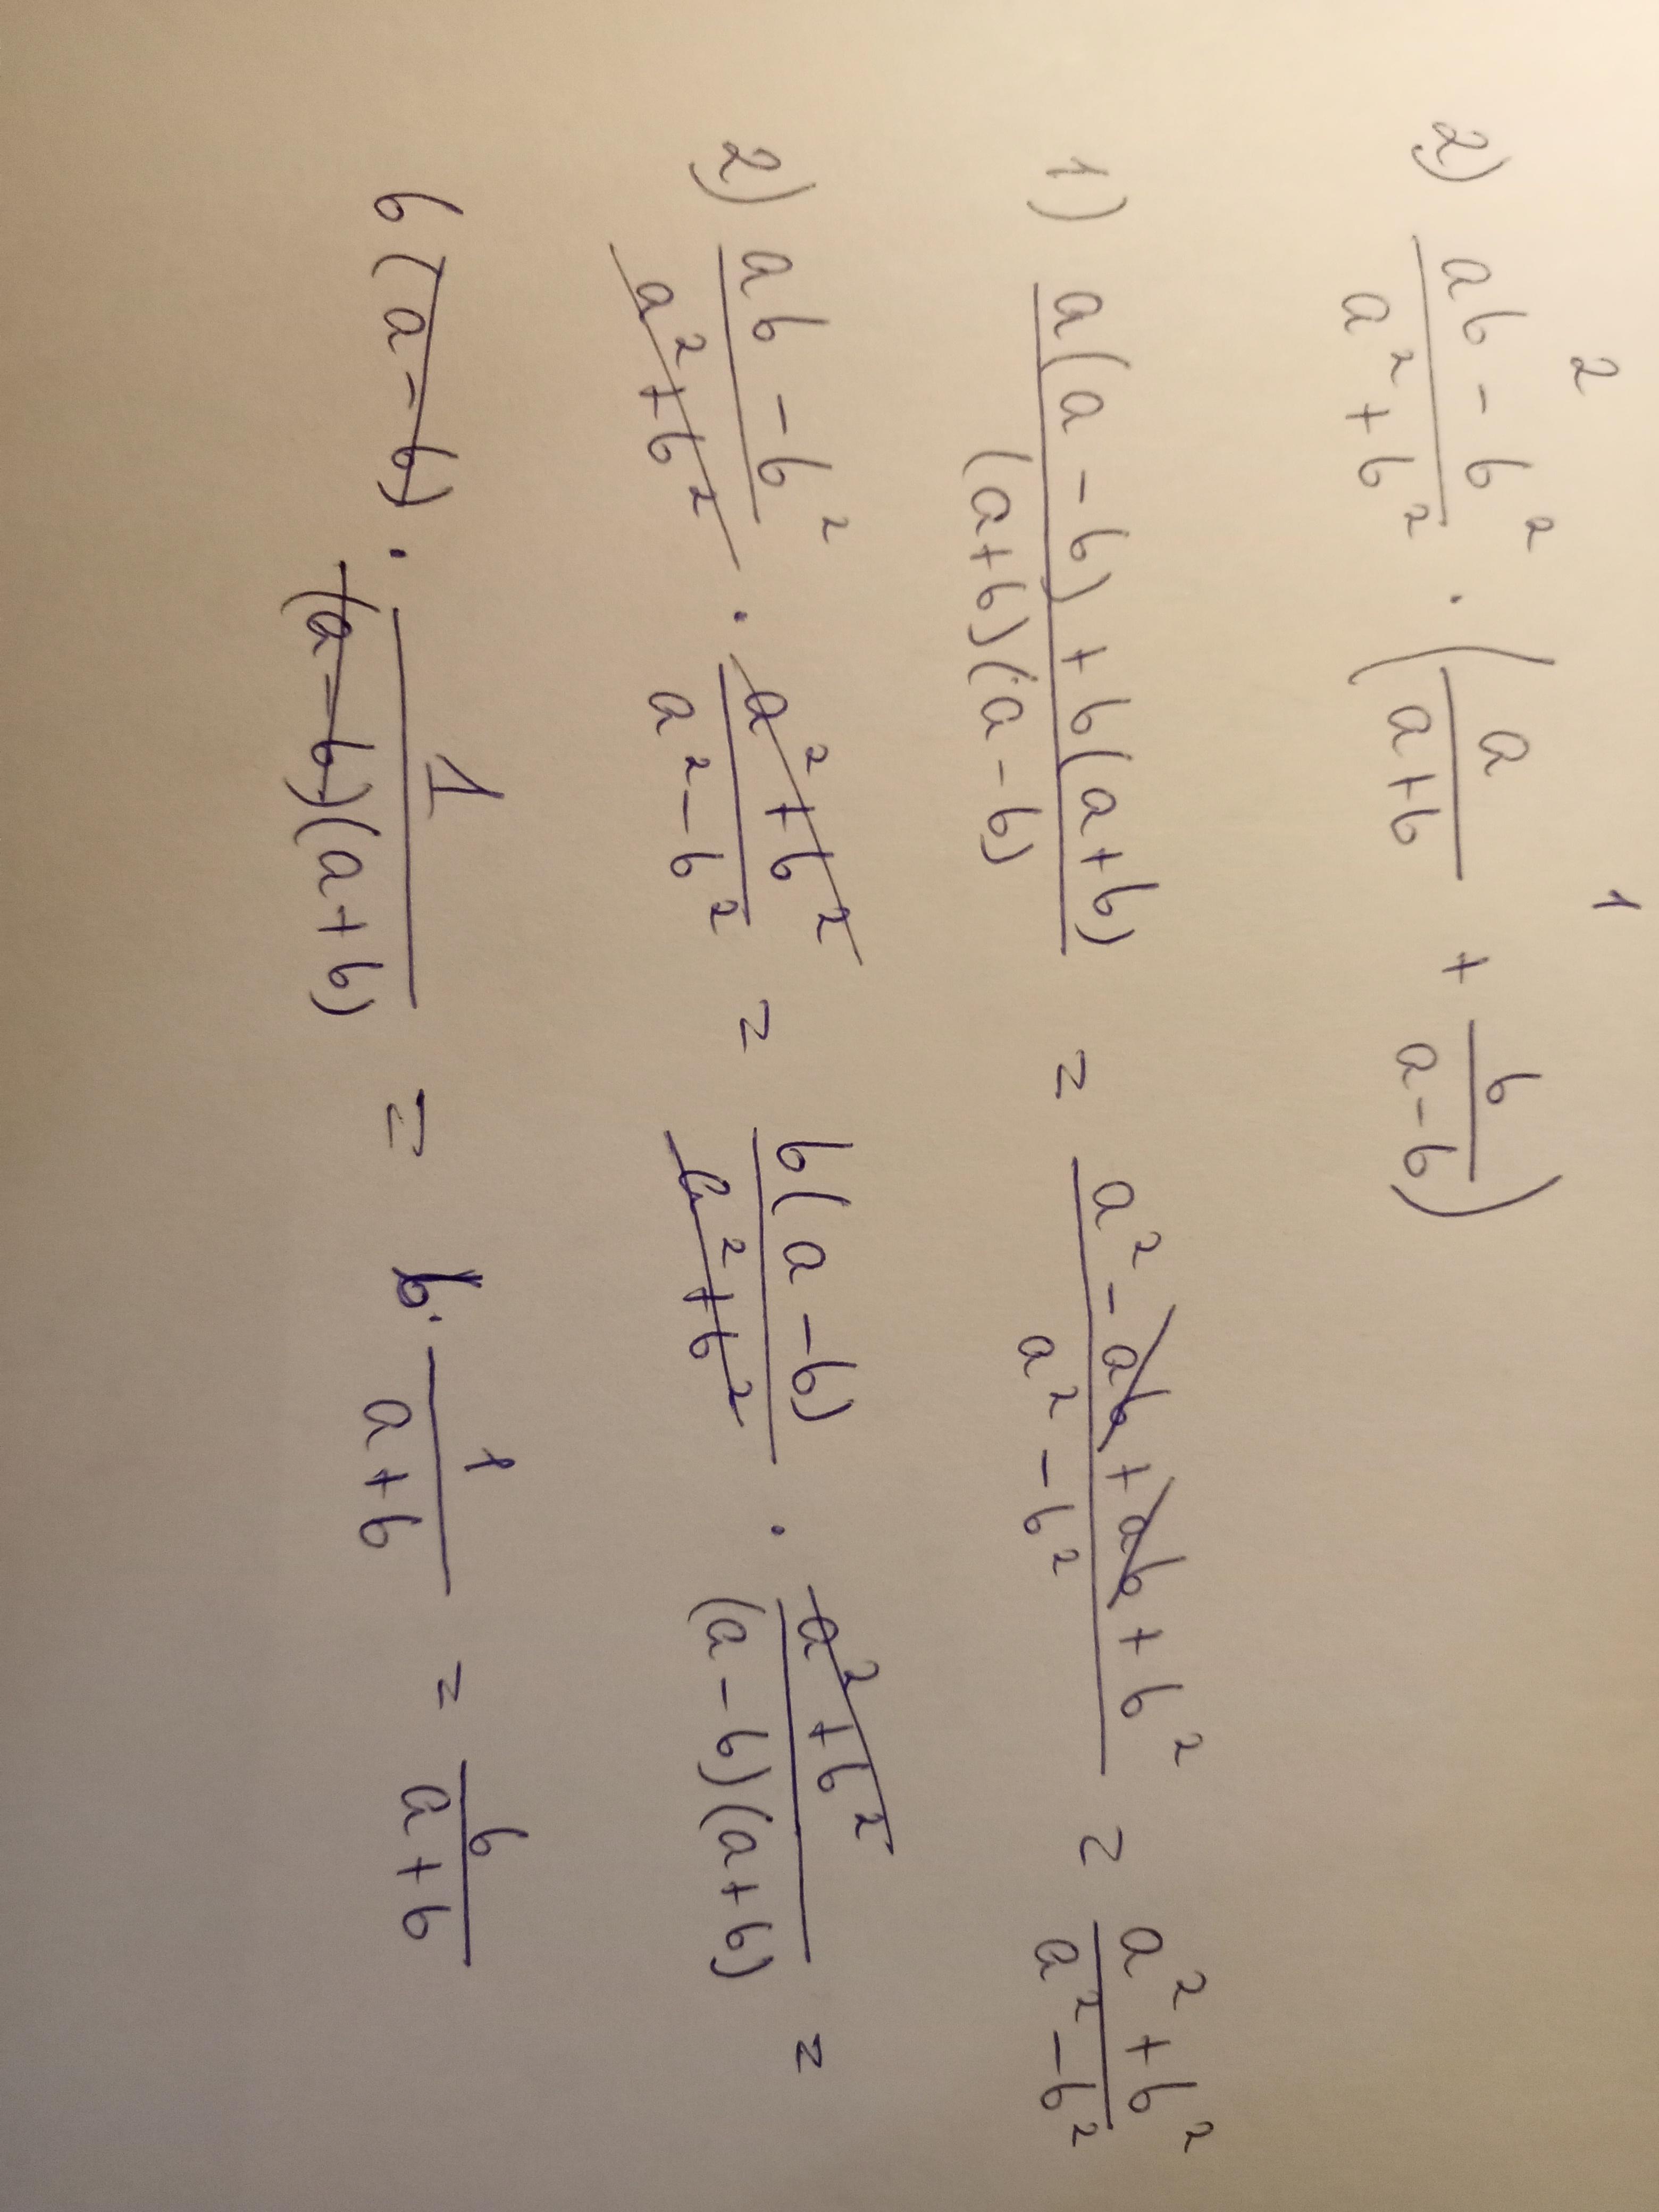 2 1
2) (ab - b²)/(a² + b²) · (a/(a+b) + b/(a-b))
1) (a(a-b) + b(a+b))/((a+b)(a-b)) = (a² - ab + ab + b²)/(a² - b²) = (a² + b²)/(a² - b²)
2) (ab - b²)/(a² + b²) · (a² + b²)/(a² - b²) = b(a-b)/(a² + b²) · (a² + b²)/((a-b)(a+b)) =
b(a-b) · 1/((a-b)(a+b)) = b · 1/(a+b) = b/(a+b)